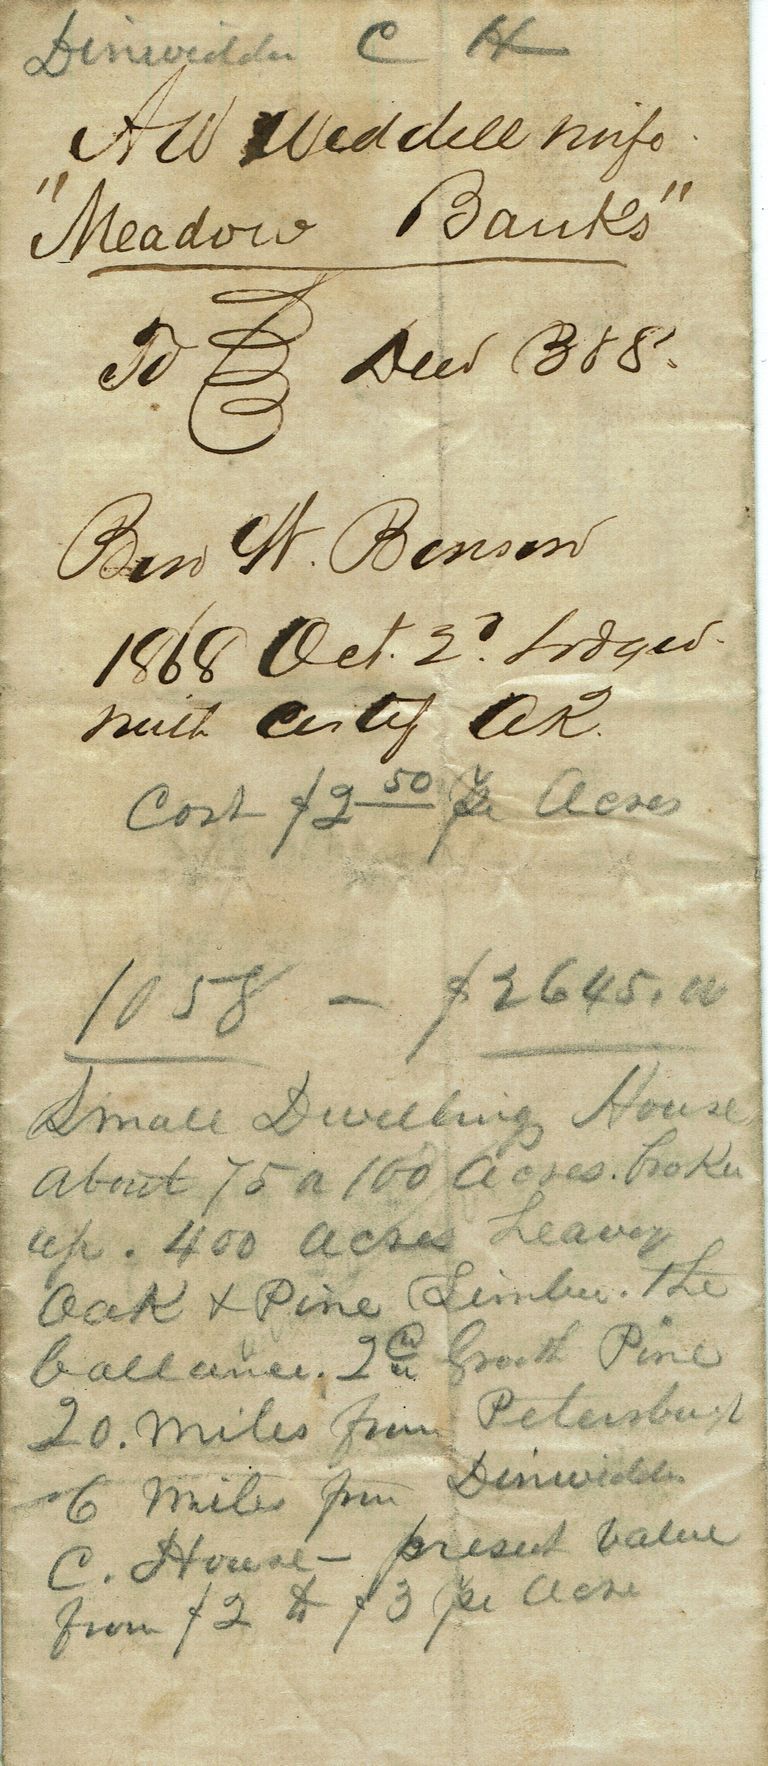 Dinwiddie C H
A W Weddell & wife
"Meadow Banks"
To Deed B & S.
Ben W. Benson
1868 Oct. 2d. Lodged
with Certif AR.
Cost $2 50 pr Acres
1058 - $2645.00
Small Dwelling House
about 75 a 100 Acres. broken
up. 400 acres heavy
Oak & Pine Timber. The
ballance. 2d Groth Pine
20. miles from Petersburg
6 miles from Dinwiddie
C. House - present value
from $2 to $3 pr acre